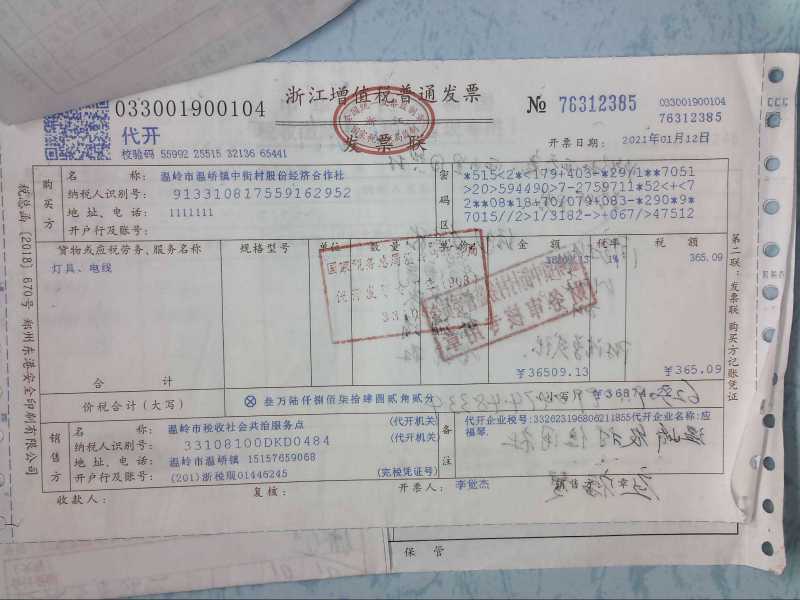 033001900104
浙江增值税普通发票
№ 76312385
033001900104
76312385
代开
发票联
校验码 55992 25515 32136 65441
开票日期: 2021年01月12日
税总函〔2018〕670号 郑州东港安全印刷有限公司
购买方
名 称: 温岭市温峤镇中街村股份经济合作社
纳税人识别号: 913310817559162952
地址、电话: 1111111
开户行及账号:
密码区
*515<2*<179+403-*29/1**7051
>20>594490>7-2759711*52<+<7
2**08*18+70/079+083-*290*9*
7015//2>1/3182->+067/>47512
货物或应税劳务、服务名称 规格型号 单位 数量 单价 金额 税率 税额
灯具、电线 36509.13 1% 365.09
合计 ¥36509.13 ¥365.09
价税合计(大写) ⊗ 叁万陆仟捌佰柒拾肆圆贰角贰分 (小写) ¥36874.22
销售方
名 称: 温岭市税收社会共治服务点 (代开机关)
纳税人识别号: 33108100DKD0484 (代开机关)
地址、电话: 温岭市温峤镇 15157659068
开户行及账号: (201)浙税服01446245 (完税凭证号)
备注
代开企业税号:332623196806211855代开企业名称:应
福琴
收款人:
复核:
开票人: 李觉杰
销售方:章
第二联:发票联 购买方记账凭证
保管